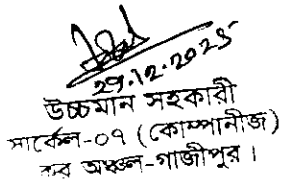 29.12.2025
উচ্চমান সহকারী
সার্কেল-০৭ (কোম্পানীজ)
কর অঞ্চল-গাজীপুর।